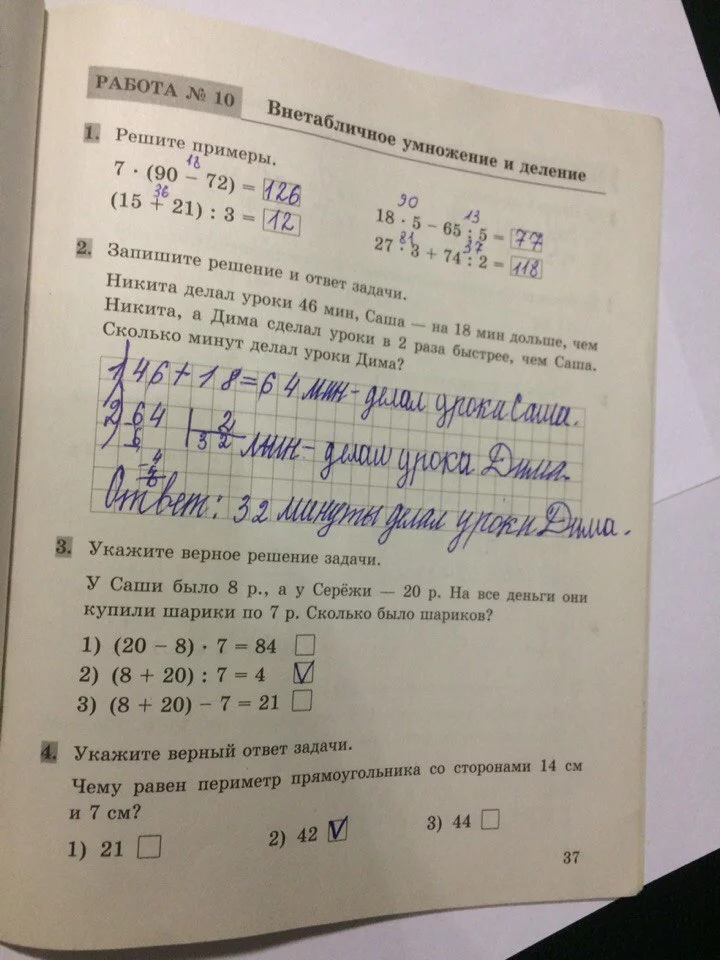 РАБОТА № 10 Внетабличное умножение и деление
1. Решите примеры.
18
7 · (90 − 72) = 126
36
(15 + 21) : 3 = 12
90 13
18 · 5 − 65 : 5 = 77
81 37
27 : 3 + 74 : 2 = 118
2. Запишите решение и ответ задачи.
Никита делал уроки 46 мин, Саша — на 18 мин дольше, чем
Никита, а Дима сделал уроки в 2 раза быстрее, чем Саша.
Сколько минут делал уроки Дима?
1) 46+18=64 мин - делал урока Саша.
2) 64 | 2
6 32 мин - делаш урока Дима.
4
Ответ: 32 минуты делал уроки Дима.
3. Укажите верное решение задачи.
У Саши было 8 р., а у Серёжи — 20 р. На все деньги они
купили шарики по 7 р. Сколько было шариков?
1) (20 − 8) · 7 = 84
2) (8 + 20) : 7 = 4 V
3) (8 + 20) − 7 = 21
4. Укажите верный ответ задачи.
Чему равен периметр прямоугольника со сторонами 14 см
и 7 см?
1) 21 2) 42 V 3) 44
37